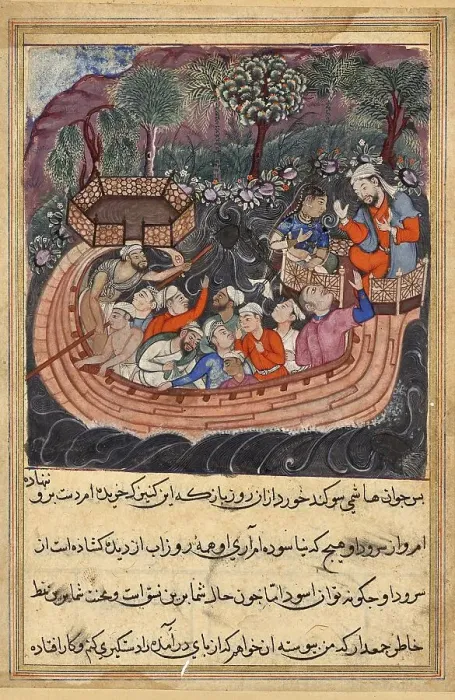 پس جوان هاشمی سوکند خورد از ان روز باز که این کنیزک خریده ام دست بر و ننهاده
ام و از سرود او هیچ که نیاسوده ام آری او همه روز اب از دیده کشاده است از
سرود او چکونه توان اسود اما چون حال شما برین نسق است و محنت شما برین نمط
خاطر جمع دار که من پیوسته ان خواهم که از پای در آمده را دستکیری کنم و کار افتاده